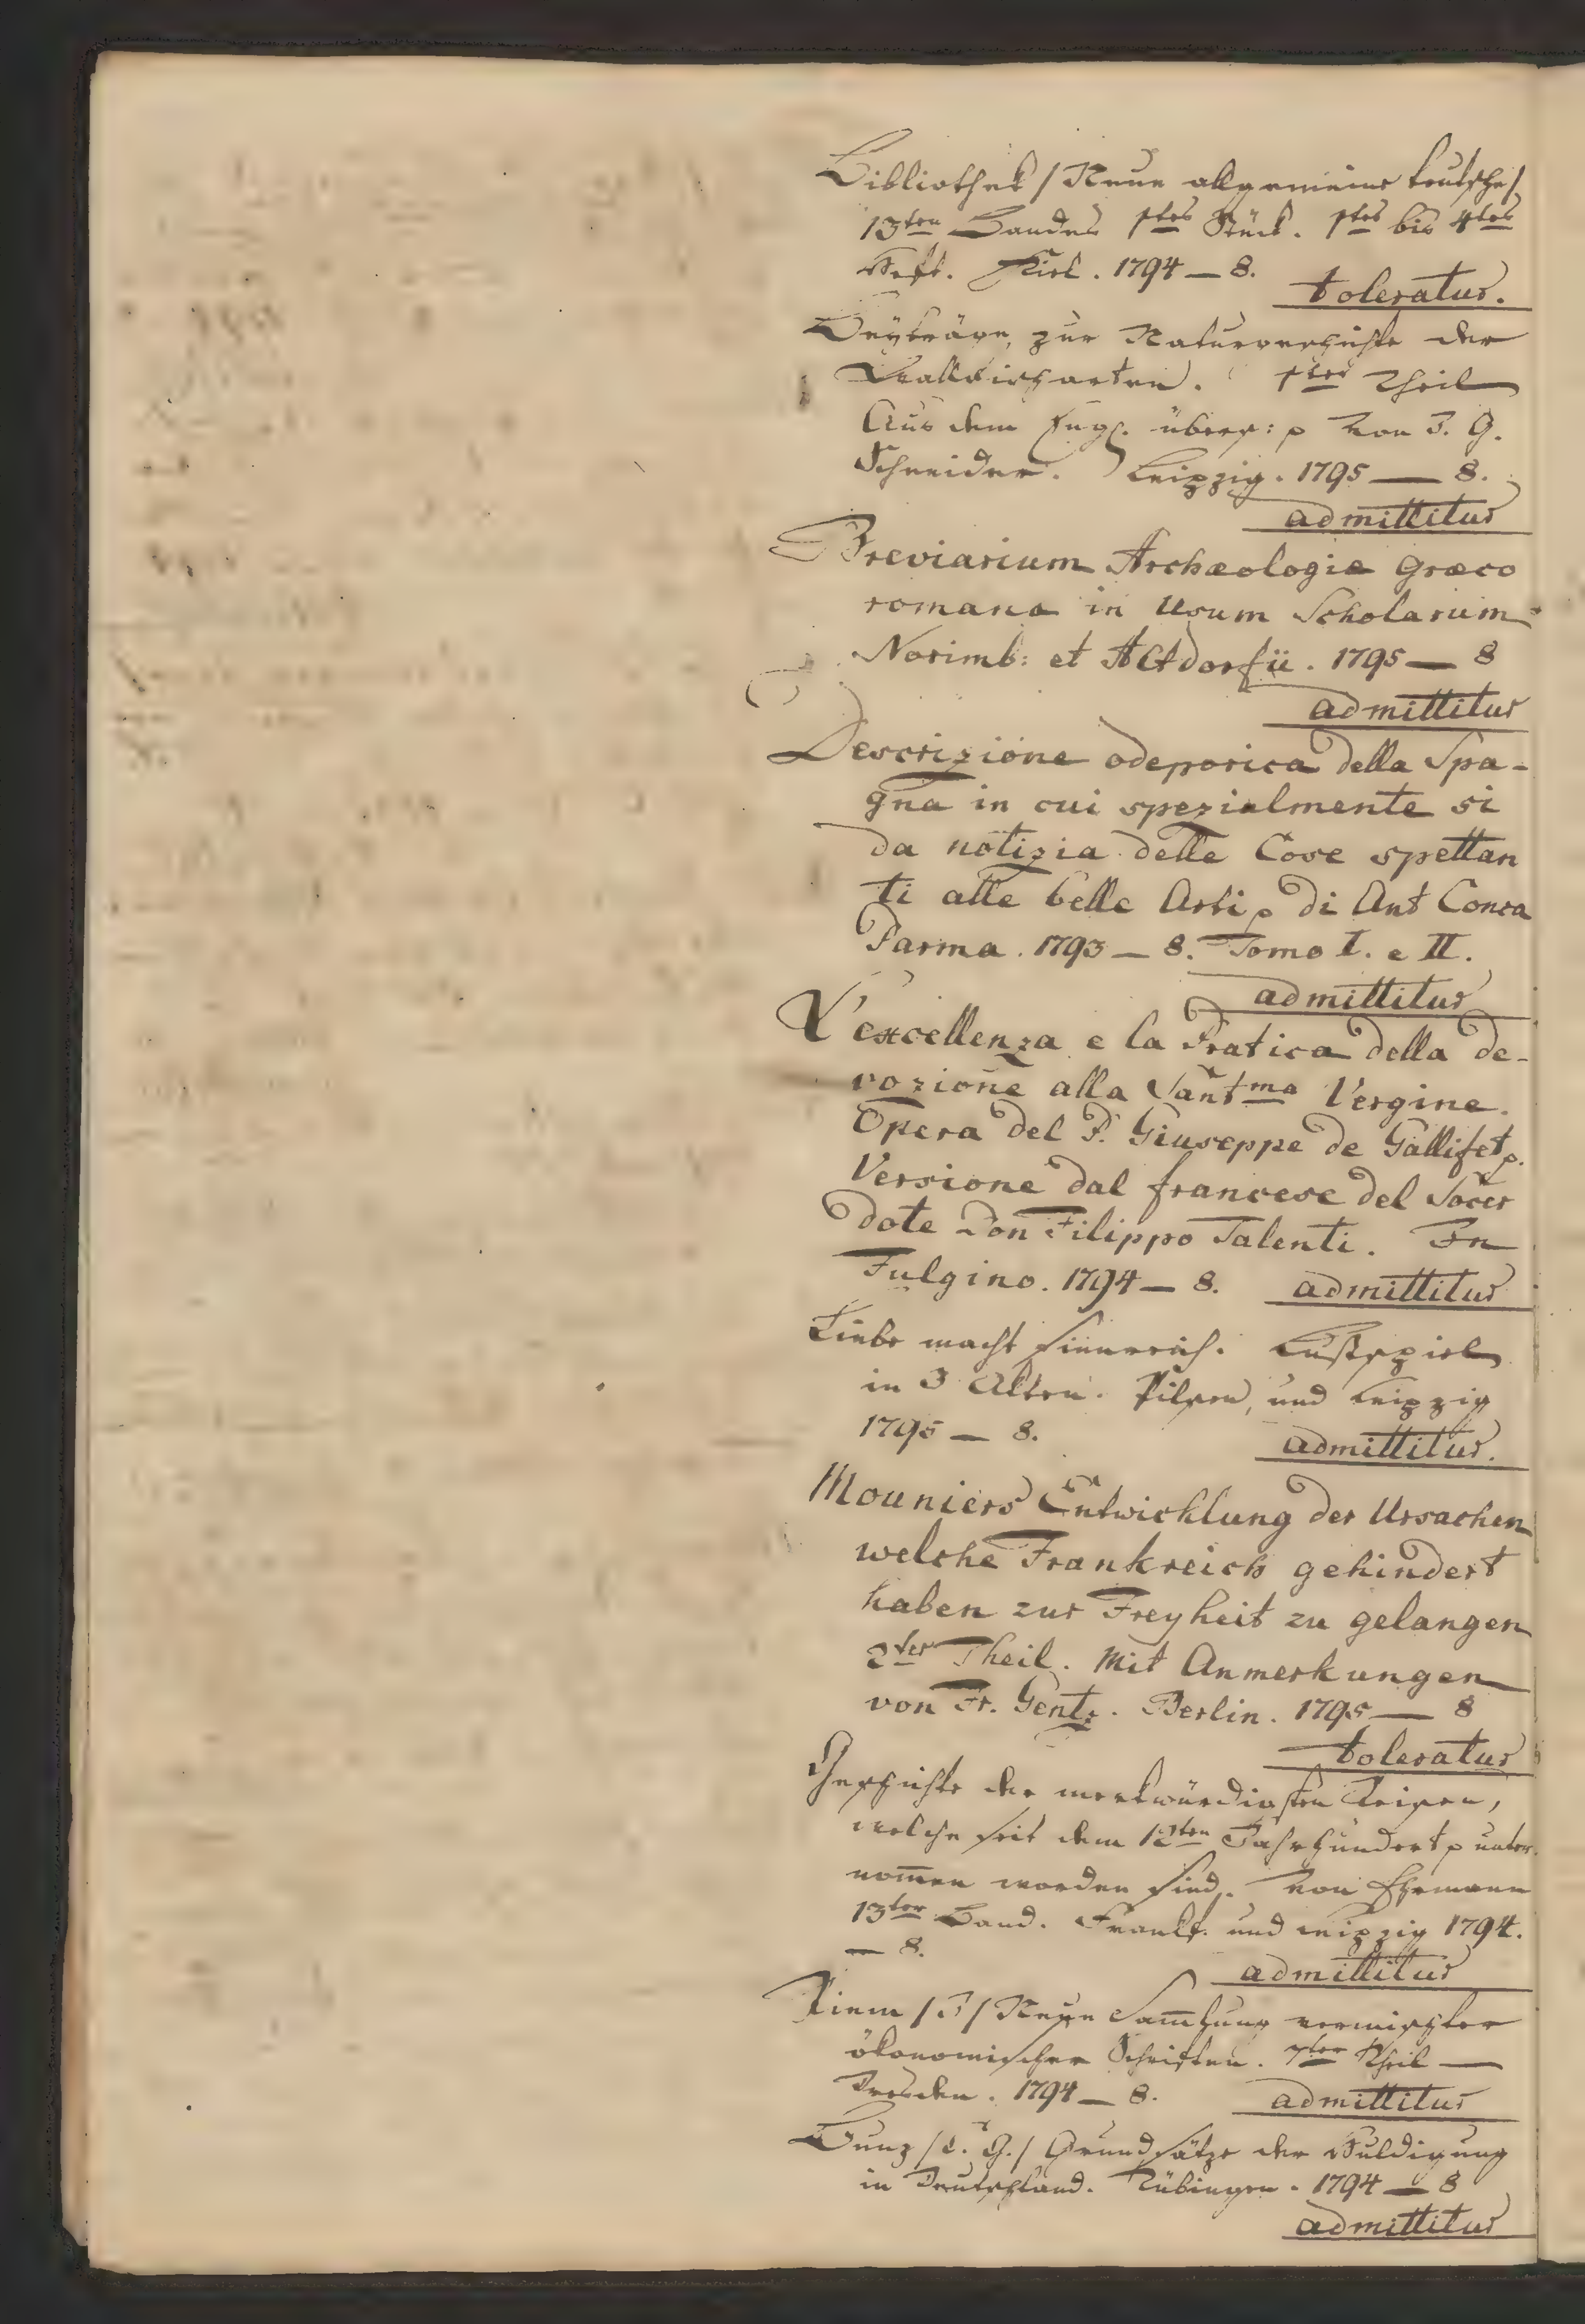 Bibliothek /Neue allgemeine deutsche/
13ten Bandes 1tes Stück. 1tes bis 4tes
Heft. Kiel. 1794 — 8.
toleratur.
Beyträge, zur Naturgeschichte der
Wallfischarten. 1ter Theil
Aus dem Engl. übers: p von J. G.
Schneider. Leipzig. 1795 — 8.
admittitur
Breviarium Archæologiæ Græco
romana in Usum Scholarum
Norimb: et Altdorfii. 1795 — 8
admittitur
Descrizione odeporica della Spa-
gna in cui spezialmente si
da notizia delle Cose spettan
ti alle belle Arti p di Ant Conca
Parma. 1793 — 8. Tomo I. e II.
admittitur
L'excellenza e la Pratica della de-
vozione alla Santma Vergine.
Opera del P. Giuseppe de Gallifet p.
Versione dal francese del Sacer
dote Don Filippo Talenti. In
Fulgino. 1794 — 8. admittitur
Liebe macht sinnreich. Lustspiel
in 3 Akten. Pilsen, und Leipzig
1795 — 8.
admittitur.
Mouniers Entwicklung der Ursachen
welche Frankreich gehindert
haben zur Freyheit zu gelangen
2ter Theil. Mit Anmerkungen
von Fr. Gentz. Berlin. 1795 — 8
toleratur
Geschichte der merkwürdigsten Reisen,
welche seit dem 12ten Jahrhundert p unter
nom̄en worden sind. Von Ehrmann
13ter Band. Frankf. und Leipzig 1794.
— 8.
admittitur
Riem /J/ Neue Sam̄lung vermischter
ökonomischer Schriften. 7ter Theil —
Dresden. 1794 — 8. admittitur
Bunz /C. G./ Grundsätze der Huldigung
in Deutschland. Tübingen. 1794 — 8
admittitur